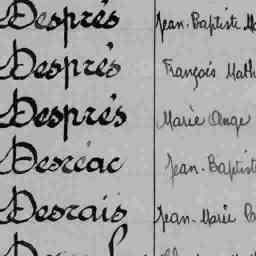 Després Jean-Baptiste
Després François Math
Després Marie Ange
Desréac Jean-Baptist
Desrais Jean-Marie